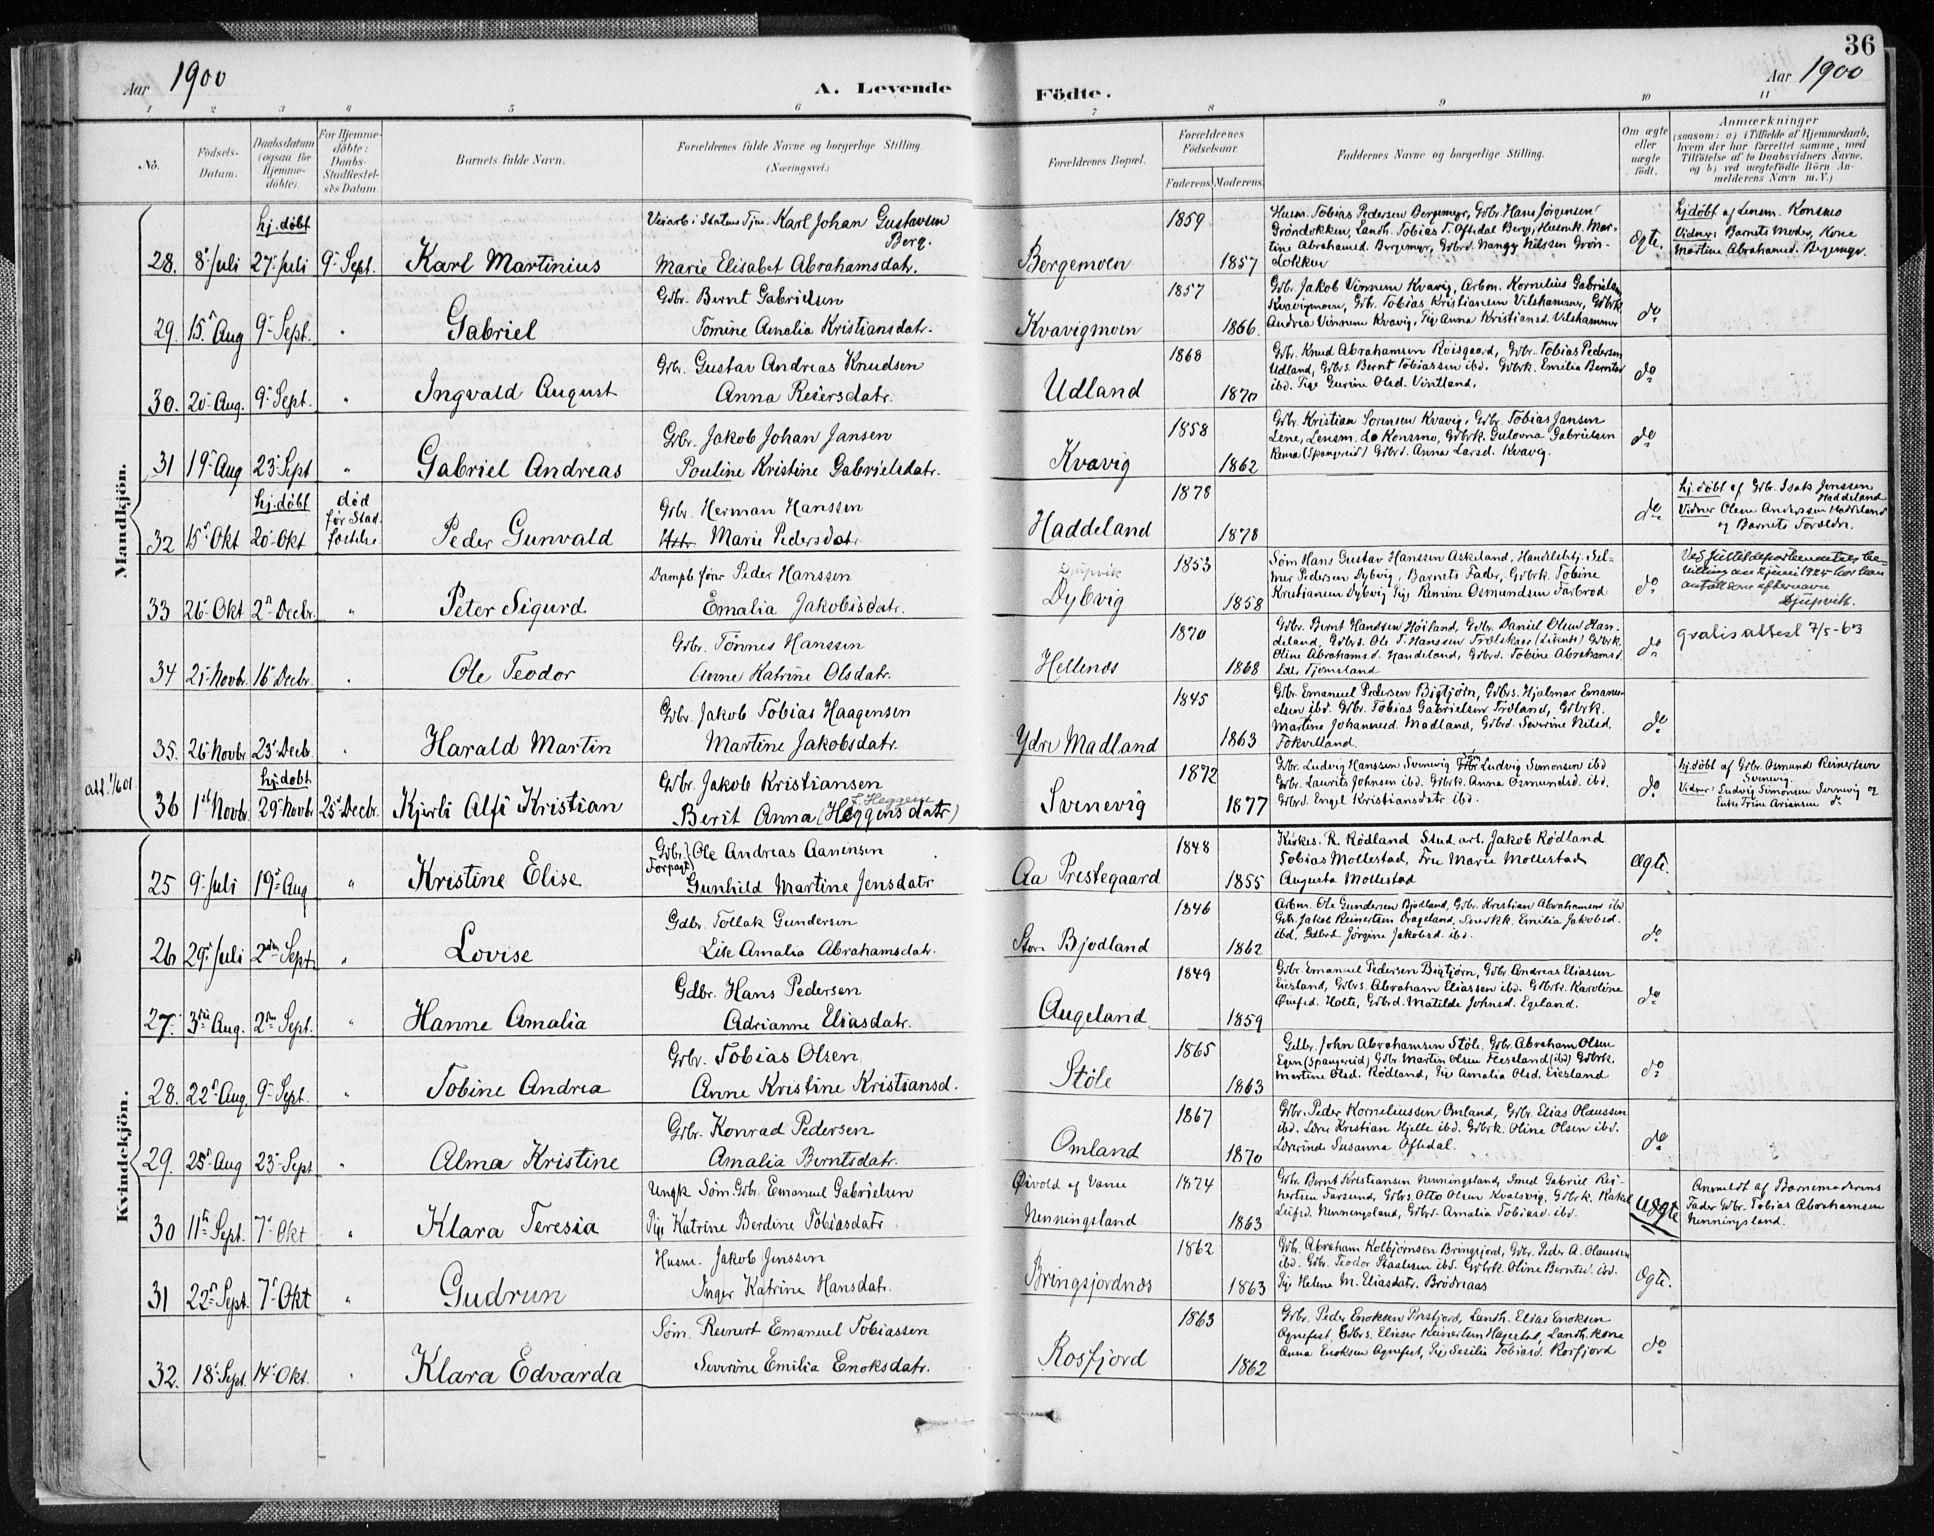 36
Aar 1900 A. Levende Födte. Aar 1900
1 2 3 4 5 6 7 8 9 10 11
No. Födsels-Datum. Daabsdatum (ogsaa for Hjemme-döbte). For Hjemme-döbte: Daabs-Stadfæstel-ses Datum. Barnets fulde Navn. Forældrenes fulde Navne og borgerlige Stilling. (Næringsvei.) Forældrenes Bopæl. Forældrenes Födselsaar. Faderens. Moderens. Faddernes Navne og borgerlige Stilling. Om ægte eller uægte födt. Anmærkninger (saasom: a) i Tilfælde af Hjemmedaab, hvem der har forrettet samme, med Tilföielse af to Daabsvidners Navne, og b) ved uægtefödte Börn An-melderens Navn m. V.)
Mandkjön.
hj. döbt Karl Johan Gustavsen Berg. 1859 Husm. Tobias Pedersen Bergemyr, Gdbr. Hans Jörgensen
28. 8de Juli 27 Juli 9 Sept. Karl Martinius Marie Elisabet Abrahamsdatr. Bergemoen 1857 Ægte. hj. döbt af Lensm. Konsmo Vidner: Barnets Moder, Kone Martine Abrahamsd. Bergemyr.
Gdbr. Bernt Gabrielsen 1857 Gdbr. Jakob Vinnem Kvavig, Arbm. Kornelius Gabrielsen
29. 15 Aug 9 Sept. " Gabriel Tomine Amalia Kristiansdatr. Kvavigmoen 1866. Kvavigmoen, Gdb. Tobias Kristiansen Vilshammer, Gdbrk. Andrea Vinnem Kvavig, Pige Anna Kristiansd. Vilshammer do
Gdbr. Gustav Andreas Knudsen 1868 Gdbr. Knud Abrahamsen Kvisgaard, Gdbr. Tobias Pedersen
30. 20 Aug. 9 Sept. " Ingvald August Anna Reiersdatr. Udland 1870 Udland, Gdbrs. Bernt Tobiassen ibd. Gdbrk. Emilia Berntsen ibd. Pige Gurine Olsd. Vintland. do
Gdbr. Jakob Johan Jansen 1858 Gdbr. Kristian Sorensen Kvavig, Gdbr. Tobias Jansen
31 19 Aug 23 Sept " Gabriel Andreas Pouline Kristine Gabrielsdatr. Kvavig 1862 Lene, Lensm. Konsmo, Gdbrk. Gulovna Gabrielsen (Spangereid) Gdbrd. Anna Larsd. Kvavig. do
hj. döbt död för Stad-fæstelse Gdbr. Herman Hanssen 1878
32 15 Okt 20 Okt Peder Gunvald Marie Pedersdatr. Haddeland 1878 do hj. döbt af Gdbr. Isak Jenssen Haddeland Vidner Olene Anderssen Haddeland og Barnets Forældre.
Dampb. förer Peder Hanssen Djupvik 1853 Söm Hans Gustav Hanssen Askeland, Handelsbtj. Sel-
33 26 Okt 2 Decbr. " Peter Sigurd Emalia Jakobisdatr. Dybvig 1858 mer Pedersen Dybvig, Barnets Fader, Gdbrk. Tobine Kristiansen Dybvig Pige Remine Osmundsen Farbrod do Ved Justitdepartementets be-villing av 2 juni 1925 har han antatt som efternavn Djupvik.
Gdbr. Tönnes Hanssen 1870 Gdbr. Bernt Handsen Höiland, Gdbr. Daniel Olsen Han-
34 21 Novbr. 16 Decbr. Ole Teodor Anne Katrine Olsdatr. Hellenes 1868 deland, Gdbrs. Ole T. Hanssen Gdbrk. Oline Abrahamsd. Handeland, Gdbrd. Tobine Abrahamsd. Tjomsland do gratis attest 7/5-63
Gdbr. Jakob Tobias Haagensen 1845 Gdbr. Emanuel Pedersen Bigtjörn, Gdbrs. Hjalmar Emanu-
35. 26 Novbr 23 Decb. Harald Martin Martine Jakobsdatr. Ydre Madland 1863 elsen ibd. Gdbr. Tobias Gabrielsen Troland, Gdbrk. Martine Johannesd. Madland, Gdbrd. Severine Nilsd. do
att. 1/6 01 hj. döbt Gdbr. Jakob Kristiansen 1872 Gdbr. Ludvig Hanssen Svenevig Ludvig Simonsen ibd
36 1ste Novbr. 29 Novbr 25 Decbr. Kjerli Alfi Kristian Berit Anna (Heggens datr) Svenevig 1877 Gdbr. Laurits Johnsen ibd. Gdbrk. Anna Osmundsd. ibd. Gdbrd. Engel Kristiansdatr ibd. do hj. döbt af Gdbr. Osmund Reinertsen Svenevig. Vidner: Ludvig Simonsen Svenevig og Enke Trine Ariansen do
Kvindekjön.
Gdbr. Forpagt. Ole Andreas Aanensen 1848 Kirkes. R. Rödland Stud art. Jakob Rödland
25 9 Juli 19 Aug " Kristine Elise Gunhild Martine Jensdatr Aa Prestegaard 1855 Tobias Mollestad, Fru Marie Mollestad Augusta Mollestad Ægte.
Gdbr. Tollak Gundersen 1846 Arbm. Ole Gundersen Bjodland, Gdbr. Kristian Abrahamsen ibd
26 29 Juli 2den Sept. " Lovise Lise Amalia Abrahamsdatr. Store Bjodland 1862 Gdbr. Jakob Reinertsen Drageland, Emilia Jakobsd. ibd. Gdbrd Jörgine Jakobsd. ibd. do
Gdbr. Hans Pedersen 1849 Gdbr. Emanuel Pedersen Bigtjörn, Gdbr. Andreas Eliassen
27. 3die Aug. 2 Sept. " Hanne Amalia Adrianne Eliasdatr. Augeland 1859 Eiesland, Gdbrs. Abraham Eliassen ibd. Gdbrk. Karoline Holte, Gdbrd. Matilde Johnsd. Egeland. do
Gdbr. Tobias Olsen 1865 Gdbr. John Abrahamsen Stöle, Gdbr. Abraham Olsen
28. 22 Aug. 9 Sept. " Tobine Andrea Anne Kristine Kristiansd. Stöle 1863 Egen (Spangereid) Gdbr Martin Olsen Feeseland (ibd) Gdbrk. Martine Olsd. Rödland, Pige Amalia Olsd. Eiesland do
Gdbr. Konrad Pedersen 1867 Gdbr. Peder Korneliussen Omland, Gdbr. Elias Olaussen
29. 25 Aug 23 Sept " Alma Kristine Amalia Berntsdatr. Omland 1870 ibd. Lærer Kristian Hjelle ibd. Gdbrk. Oline Olsen ibd. Lærerinde Susanna Oftedal. do
Ungk Söm. Gdbr. Emanuel Gabrielsen Öivold af Vanse 1874 Gdbr. Bernt Kristiansen Nenningsland, Smed Gabriel Rei-
30 11 Sept. 7 Okt " Klara Teresia Pige Katrine Berdine Tobiasdatr Nenningsland 1863 nertsen Farsund, Gdbrs. Otto Olsen Kvalsvig, Gdbrk. Rakel Leifsd. Nenningsland, Gdbrd. Amalia Tobiasd. ibd. Uægte Anmeldt af Barnemoderens Fader Gdbr. Tobias Abrahamsen Nenningsland.
Husm. Jakob Jenssen 1862 Gdbr. Abraham Kolbjörnsen Bringsjord, Gdbr. Peder A. Olaussen
31 22 Sept. 7 Okt " Gudrun Inger Katrine Hansdatr. Bringsjordnes 1863 ibd. Gdbr. Teodor Staalesen ibd. Gdbrk. Oline Berntsd. ibd. Pige Helene M. Eliasdatr. Brödreaas Ægte.
Söm. Reinert Emanuel Tobiassen 1863 Gdbr. Peder Enoksen Rosfjord, Landh. Elias Enoksen
32. 18 Sept. 14 Okt. Klara Edvarda Severine Emilia Enoksdatr. Rosfjord 1862 Agnefest, Gdbrs. Elieser Reinertsen Hagestad, Landh. kone Anna Enoksen Agnefest, Pige Sesilia Tobiasd. Rosfjord do